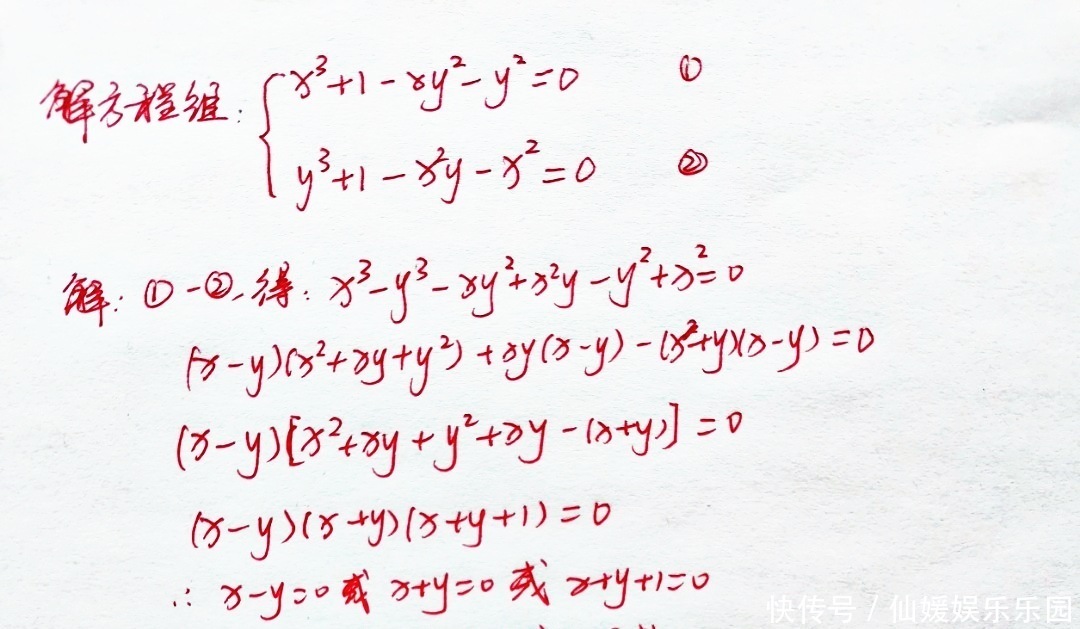 解方程组: { x³+1-xy²-y²=0 ①
y³+1-x²y-x²=0 ②
解: ①-②,得: x³-y³-xy²+x²y-y²+x²=0
(x-y)(x²+xy+y²)+xy(x-y)-(x²+y)(x-y)=0
(x-y)[x²+xy+y²+xy-(x+y)]=0
(x-y)(x+y)(x+y+1)=0
∴ x-y=0或 x+y=0 或 x+y+1=0
快传号 / 仙媛娱乐乐园